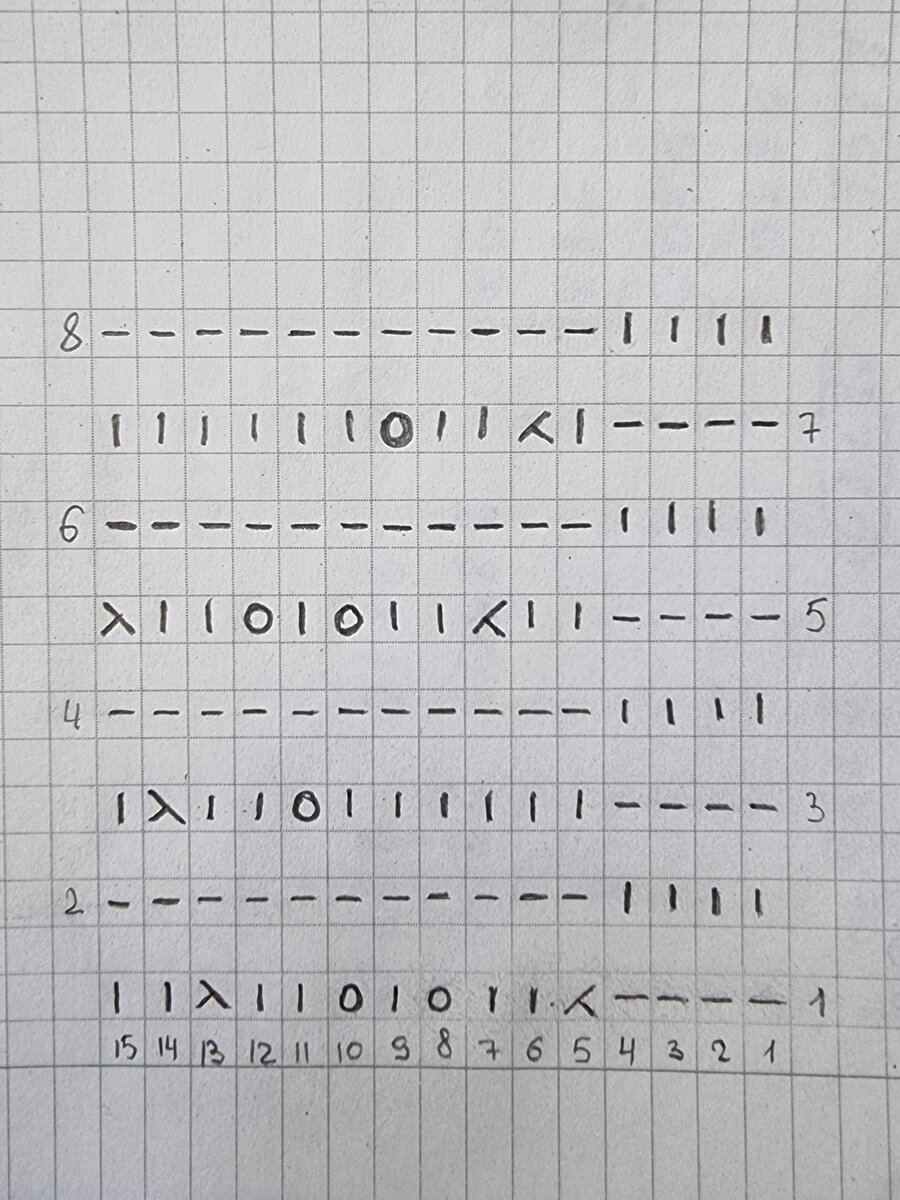 8 - - - - - - - - - - - | | | |
| | | | | | O | | ⋌ | - - - - 7
6 - - - - - - - - - - - | | | |
λ | | O | O | | ⋌ | | - - - - 5
4 - - - - - - - - - - - | | | |
| λ | | O | | | | | | - - - - 3
2 - - - - - - - - - - - | | | |
| | λ | | O | O | | ⋌ - - - - 1
15 14 13 12 11 10 9 8 7 6 5 4 3 2 1